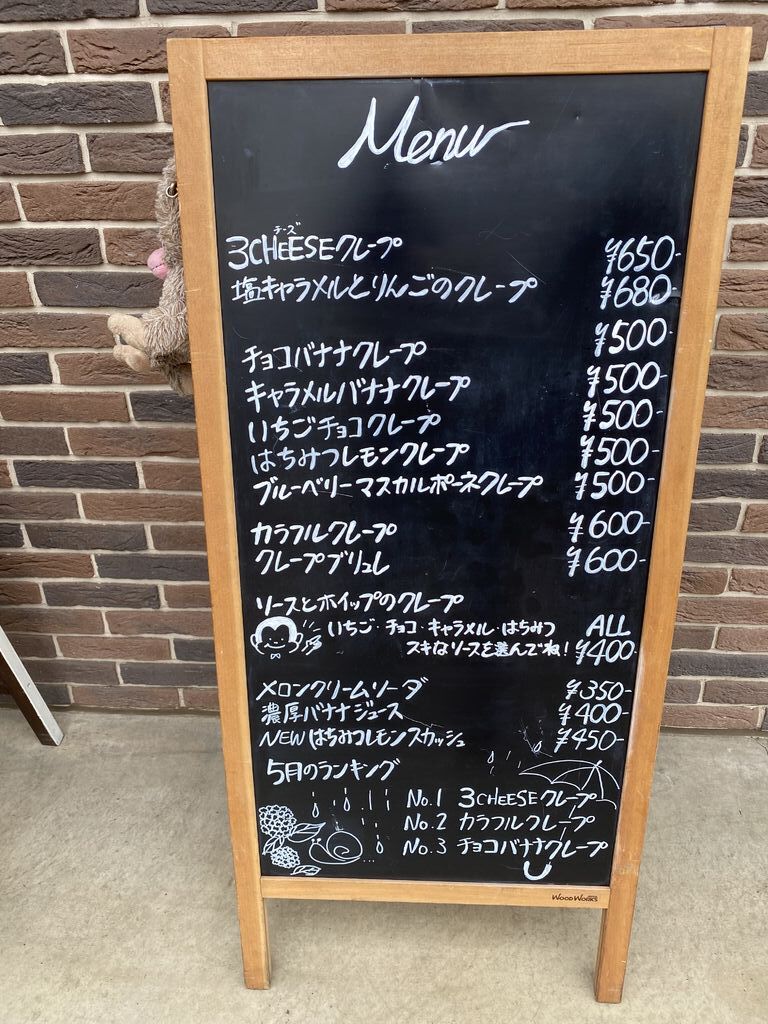 Menu
チーズ
3CHEESEクレープ ¥650-
塩キャラメルとりんごのクレープ ¥680-
チョコバナナクレープ ¥500-
キャラメルバナナクレープ ¥500-
いちごチョコクレープ ¥500-
はちみつレモンクレープ ¥500-
ブルーベリーマスカルポーネクレープ ¥500-
カラフルクレープ ¥600-
クレープブリュレ ¥600-
ソースとホイップのクレープ
いちご・チョコ・キャラメル・はちみつ ALL
スキなソースを選んでね! ¥400-
メロンクリームソーダ ¥350-
濃厚バナナジュース ¥400-
NEW はちみつレモンスカッシュ ¥450-
5月のランキング
No.1 3CHEESEクレープ
No.2 カラフルクレープ
No.3 チョコバナナクレープ
WOODWORKS